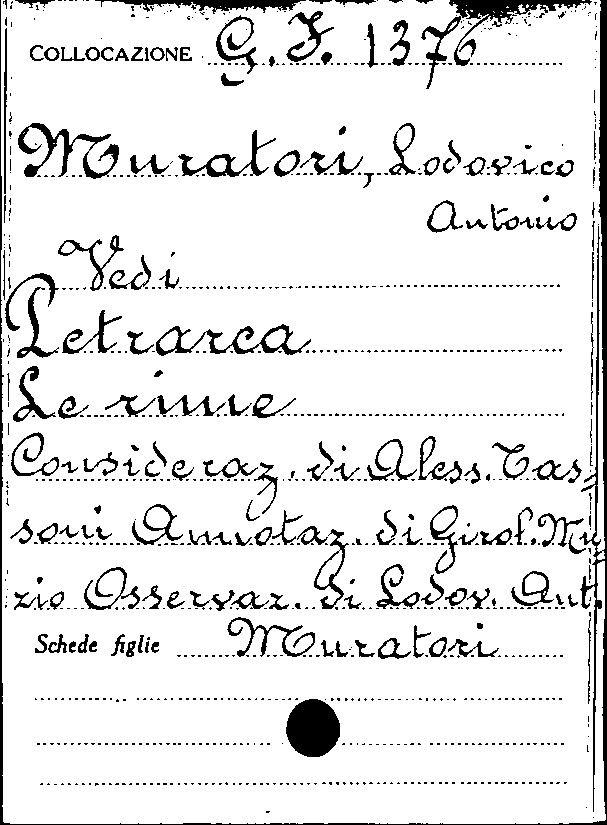 COLLOCAZIONE G. F. 1376
Muratori, Lodovico
Antonio
Vedi
Petrarca
Le rime
Consideraz. di Aless. Tas=
soni Annotaz. di Girol. Mu=
zio Osservaz. di Lodov. Ant.
Schede figlie Muratori